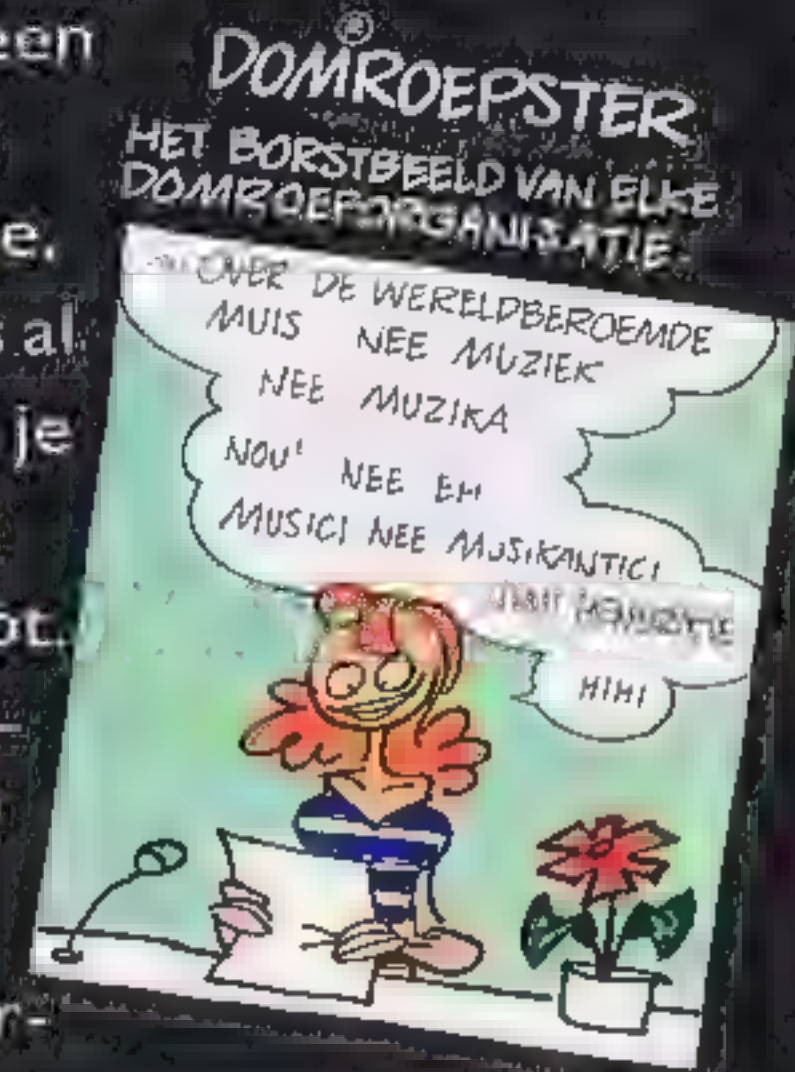 een
®
DOMROEPSTER
HET BORSTBEELD VAN ELKE
DOMROEPORGANISATIE.
e.
s al
je
OVER DE WERELDBEROEMDE
MUIS NEE MUZIEK
NEE MUZIKA
NOU' NEE EH
MUSICI NEE MUSIKANTICI
ot.
HIHI
r-